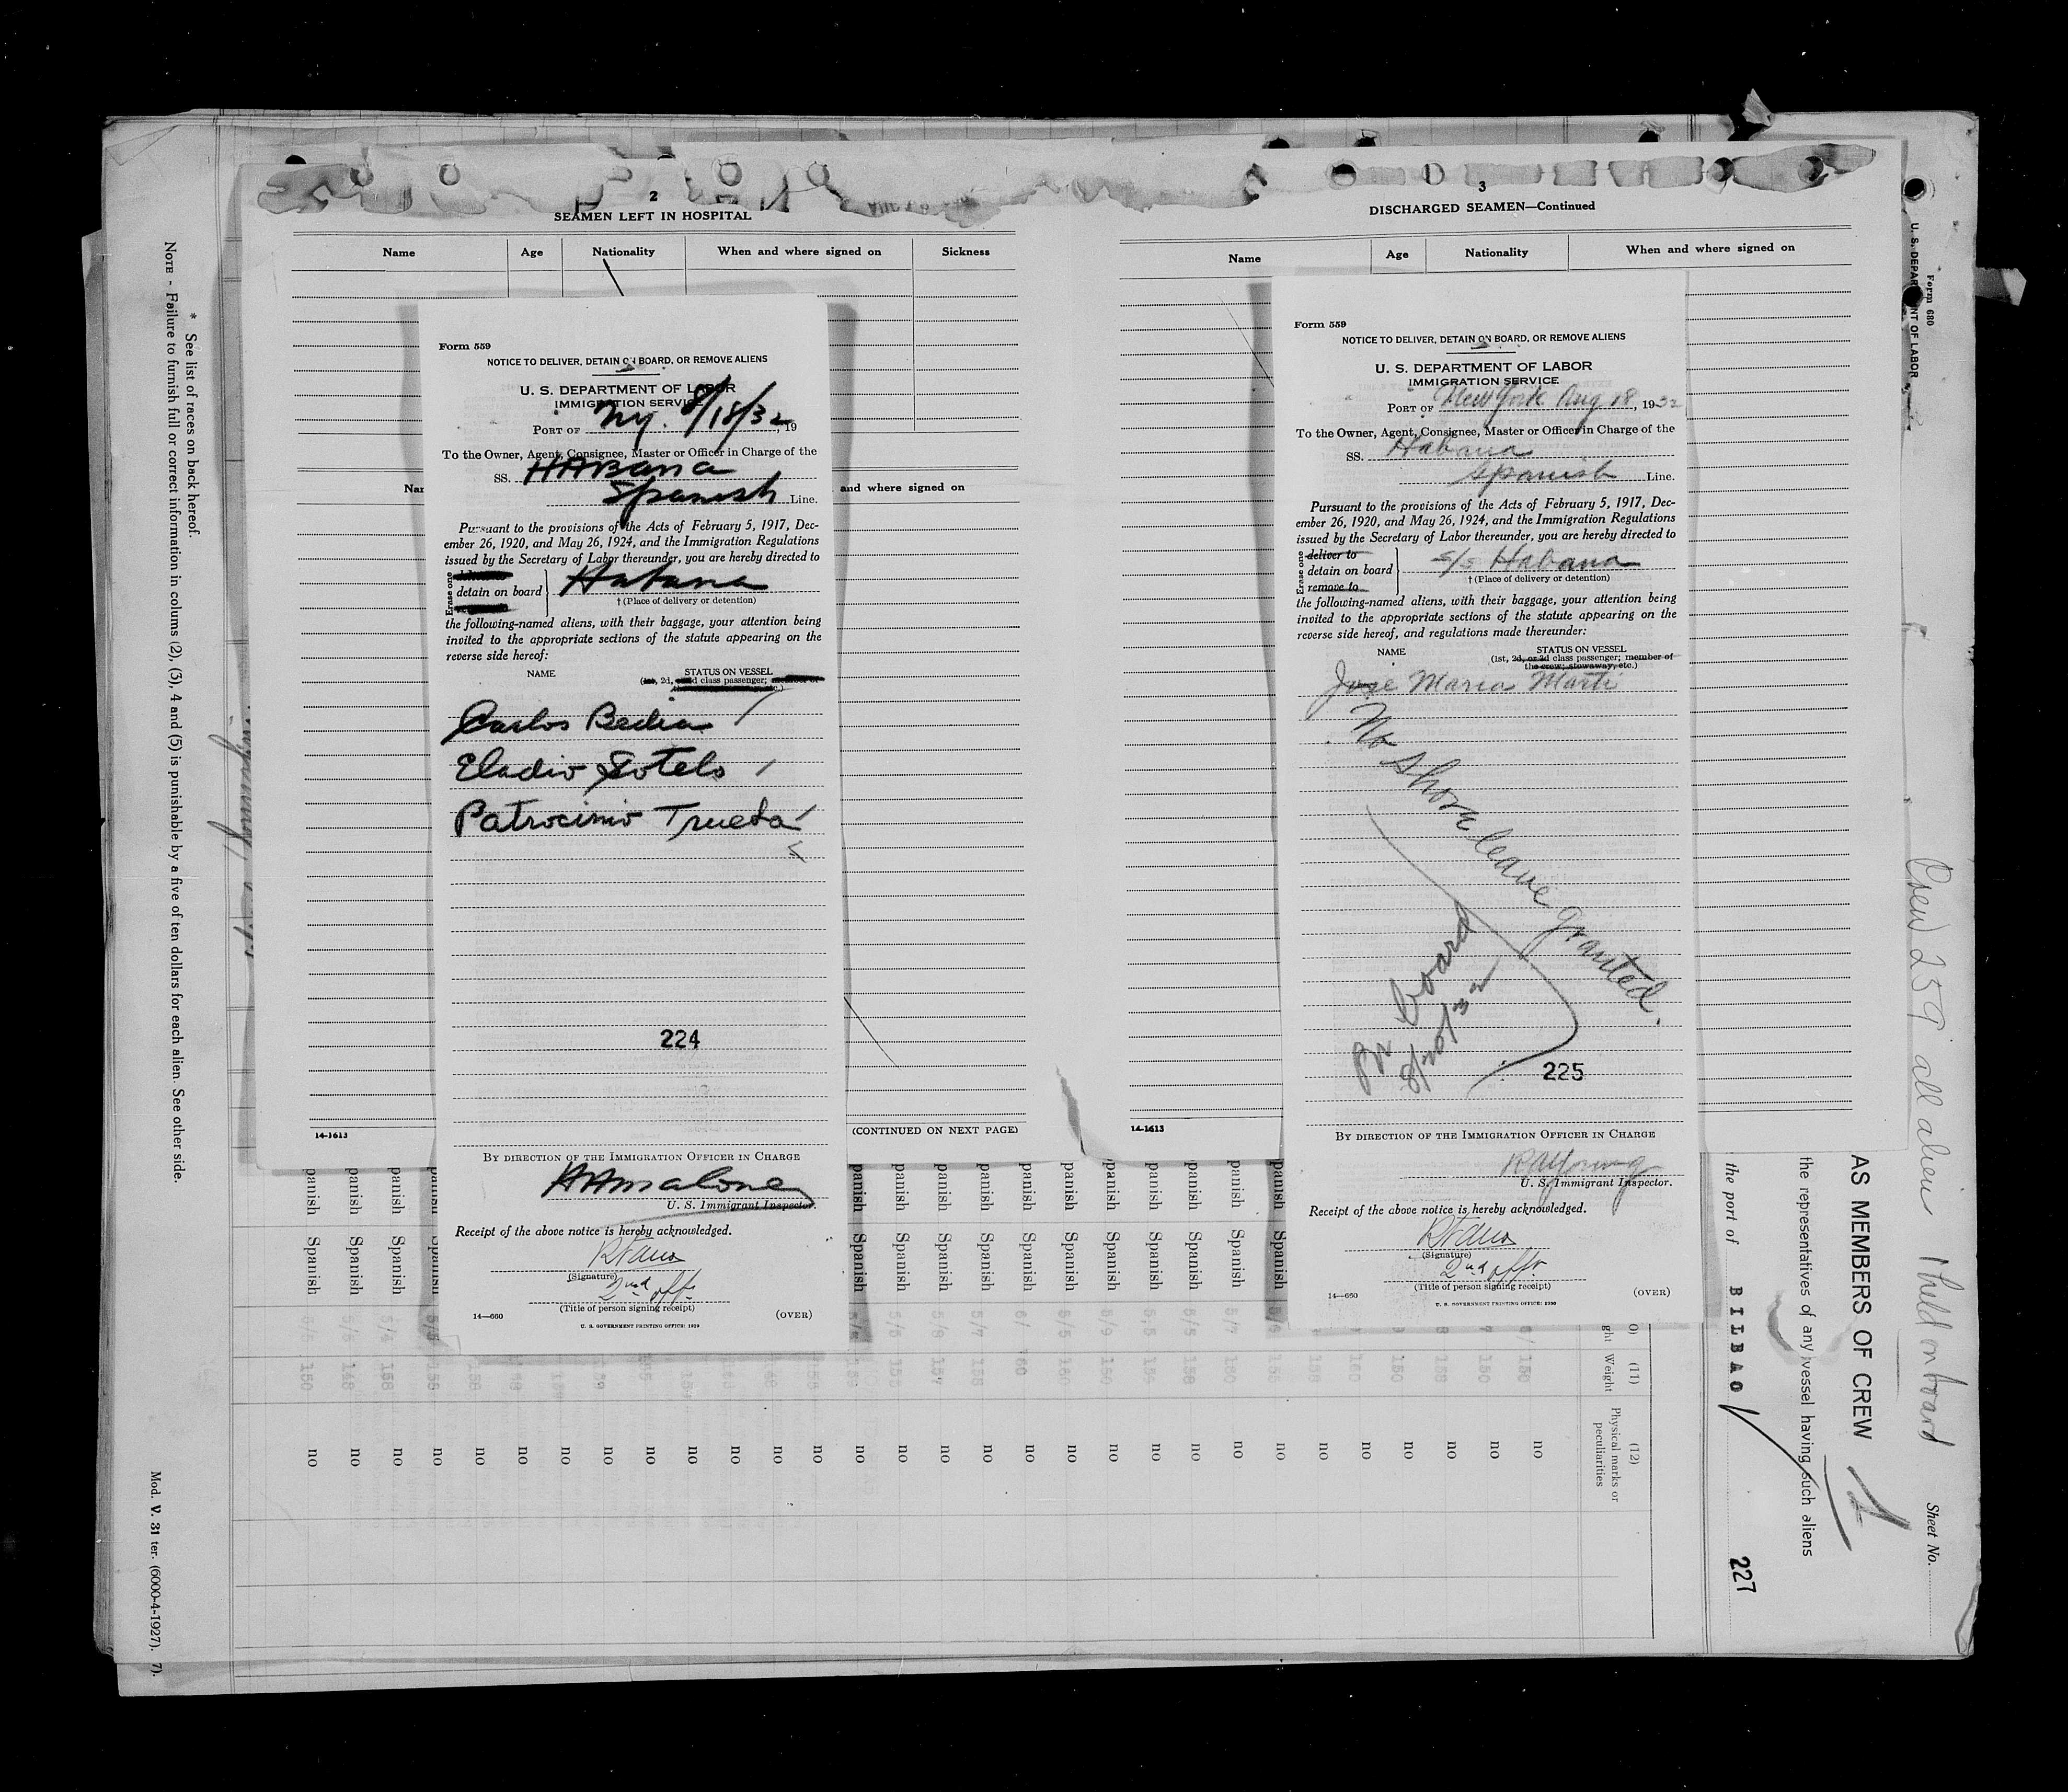 2
SEAMEN LEFT IN HOSPITAL
Name Age Nationality When and where signed on Sickness
and where signed on
14-1613
(CONTINUED ON NEXT PAGE)
Form 559
NOTICE TO DELIVER, DETAIN ON BOARD, OR REMOVE ALIENS
U. S. DEPARTMENT OF LABOR
IMMIGRATION SERVICE
PORT OF NY. 8/18/32, 19
To the Owner, Agent, Consignee, Master or Officer in Charge of the
SS. HABana
Spanish Line.
Pursuant to the provisions of the Acts of February 5, 1917, Dec-
ember 26, 1920, and May 26, 1924, and the Immigration Regulations
issued by the Secretary of Labor thereunder, you are hereby directed to
Erase one
detain on board Habana
† (Place of delivery or detention)
the following-named aliens, with their baggage, your attention being
invited to the appropriate sections of the statute appearing on the
reverse side hereof:
NAME STATUS ON VESSEL
(1st, 2d, class passenger;
etc.)
Carlos Bedia
Eladio Sotelo
Patrocinio Trueba
224
BY DIRECTION OF THE IMMIGRATION OFFICER IN CHARGE
HAMalone
U. S. Immigrant Inspector.
Receipt of the above notice is hereby acknowledged.
(Signature)
2nd offr
(Title of person signing receipt)
14—660
(OVER)
U. S. GOVERNMENT PRINTING OFFICE: 1929
3
DISCHARGED SEAMEN—Continued
Name Age Nationality When and where signed on
14-1613
Form 559
NOTICE TO DELIVER, DETAIN ON BOARD, OR REMOVE ALIENS
U. S. DEPARTMENT OF LABOR
IMMIGRATION SERVICE
PORT OF New York Aug 18, 1932
To the Owner, Agent, Consignee, Master or Officer in Charge of the
SS. Habana
Spanish Line.
Pursuant to the provisions of the Acts of February 5, 1917, Dec-
ember 26, 1920, and May 26, 1924, and the Immigration Regulations
issued by the Secretary of Labor thereunder, you are hereby directed to
Erase one
deliver to
detain on board S/S Habana
remove to
† (Place of delivery or detention)
the following-named aliens, with their baggage, your attention being
invited to the appropriate sections of the statute appearing on the
reverse side hereof, and regulations made thereunder:
NAME STATUS ON VESSEL
(1st, 2d, or 3d class passenger; member of
the crew; stowaway, etc.)
Jose Maria Marti
No shore leave granted.
on board
8/20/32
225
BY DIRECTION OF THE IMMIGRATION OFFICER IN CHARGE
RAYoung
U. S. Immigrant Inspector.
Receipt of the above notice is hereby acknowledged.
(Signature)
2nd offr
(Title of person signing receipt)
14—660
(OVER)
U. S. GOVERNMENT PRINTING OFFICE: 1930
Form 680
U. S. DEPARTMENT OF LABOR
Crew 259 all alien 1 held on board
Sheet No.
AS MEMBERS OF CREW
the representatives of any vessel having such aliens
the port of BILBAO
227
(11)
Weight
(12)
Physical marks or
peculiarities
Spanish
no
* See list of races on back hereof.
NOTE - Failure to furnish full or correct information in colums (2), (3), 4 and (5) is punishable by a five of ten dollars for each alien. See other side.
Mod. V. 31 ter. (6000-4-1927). 7).